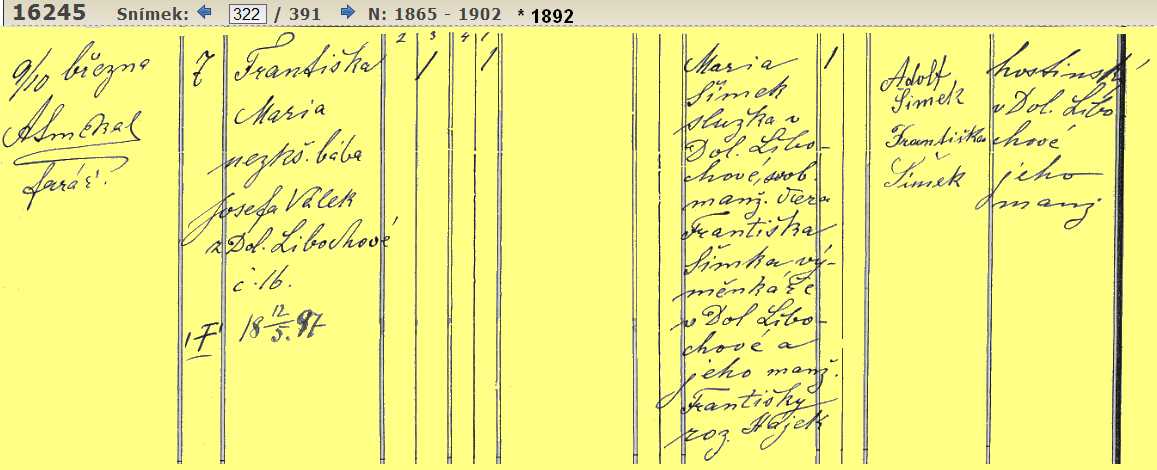 16245 Snímek: 322 / 391 N: 1865 - 1902 * 1892
2 3 4 1
9/10 března
ASmékal
farář.
7
Františka
Maria
nezkš. bába
Josefa Válek
z Dol. Libochové
č. 16.
† 18 12/5. 97
1 1
Maria
Šimek
služka v
Dol. Libo-
chové, svob.
manž. dcera
Františka
Šimka vý-
měnkáře
v Dol Libo-
chové a
jeho manž.
Františky
roz. Hájek
1
Adolf
Šimek
Františka
Šimek
hostinský
v Dol. Libo
chové
jeho
manž